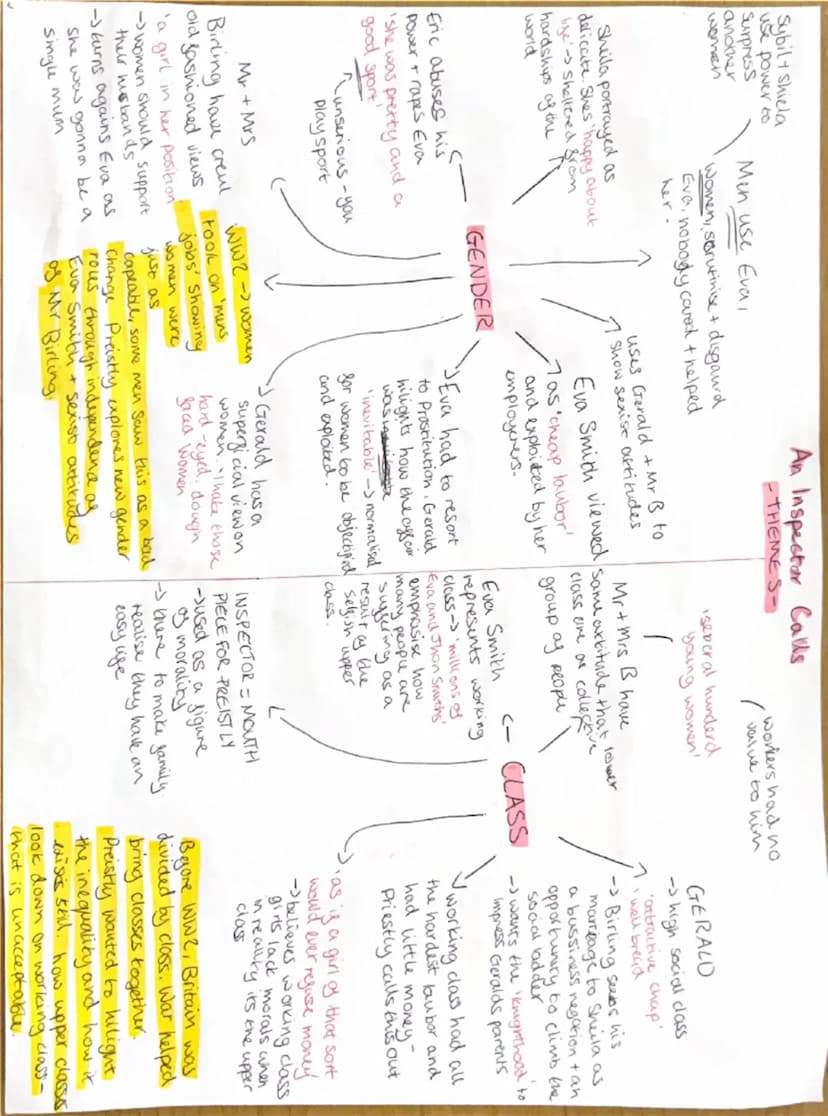 An Inspector Calls
-THEMES-
GENDER
Sybil + shiela
use power to
surpress
another
women
Men use Eva,
women, scrutinise + disgaurd
Eva, nobody cared + helped
her.
Sheila portrayed as
delicate shes 'happy about
life' -> sheltered from
hardships of the
world
Eric abuses his
power + rapes Eva
'she was pretty and a
good sport'
unserious - you
play sport
Mr + Mrs
Birling have cruel
old fashioned views
'a girl in her position'
-> women should support
their husbands
-> turns agains Eva as
she was gonna be a
single mum
WW2 -> women
took on 'mens
jobs' showing
women were
just as
capeable, some men saw this as a bad
change. Preistly explores new gender
roles through independence of
Eva Smith + sexist attitudes
of Mr Birling.
Gerald has a
superficial view on
women, 'I hate those
hard-eyed, dough
faced women
Eva had to resort
to Prostitution, Gerald
hilights how the affair
was
'inevitable' -> normalised
for women to be objectified
and exploited.
Eva Smith viewed
as 'cheap laubor'
and exploited by her
employeners.
uses Gerald + Mr B to
show sexist attitudes
CLASS
'several hunderd
young women'
workers had no
value to him
Mr + Mrs B have
same attitude that lower
class are a collective
group of people
Eva Smith
represents working
class -> 'millions of
Eva and Jhon Smiths'
emphasise how
many people are
suffering as a
result of the
selfish upper
class.
INSPECTOR = MOUTH
PIECE FOR PREISTLY
-> used as a figure
of morality
-> there to make family
realise they have an
easy life
GERALD
-> high social class
'attractive chap'
'well breed'
-> Birling sees his
marreage to Sheila as
a bussiness negotion + an
opportunity to climb the
social ladder
-> wants the 'knighthood' to
impress Geralds parents
working class had all
the hardest laubor and
had little money -
Priestly calls this out
'as if a girl of that sort
would ever refuse money'
-> believes working class
girls lack morals when
in reality its the upper
class
Before WW2, Britain was
divided by class. War helped
bring classes together.
Preistly wanted to hilight
the inequality and how it
exists still. how upper classes
look down on working class -
that is unacceptable.